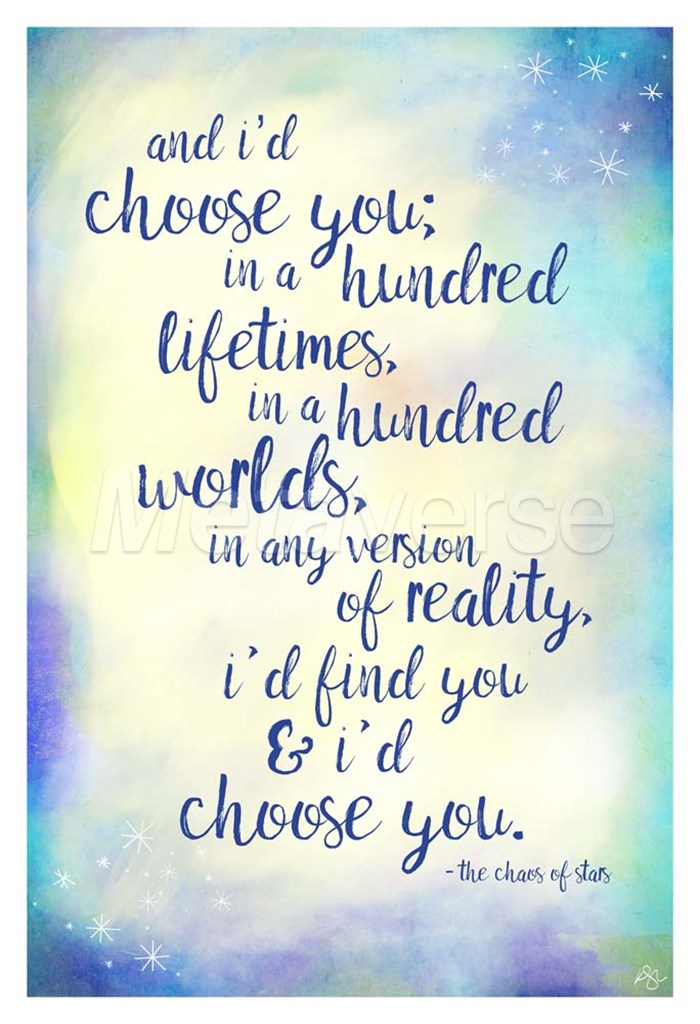 and i'd
choose you;
in a hundred
lifetimes,
in a hundred
worlds,
Metaverse
in any version
of reality,
i'd find you
& i'd
choose you.
- the chaos of stars